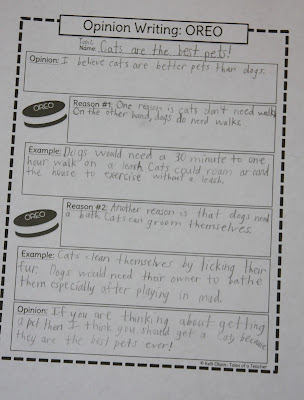 Opinion Writing: OREO
Topic
Name: Cats are the best pets!
Opinion: I believe cats are better pets than dogs.
OREO
Reason #1: One reason is cats don't need walks
On the other hand, dogs do need walks.
Example: Dogs would need a 30 minute to one
hour walk on a leash. Cats could roam around
the house to exercise without a leash.
OREO
Reason #2: Another reason is that dogs need
a bath. Cats can groom themselves.
Example: Cats clean themselves by licking their
fur. Dogs would need their owner to bathe
them especially after playing in mud.
Opinion: If you are thinking about getting
a pet then I think you should get a cat, because
they are the best pets ever!
© Kelli Olson - Tales of a Teacher